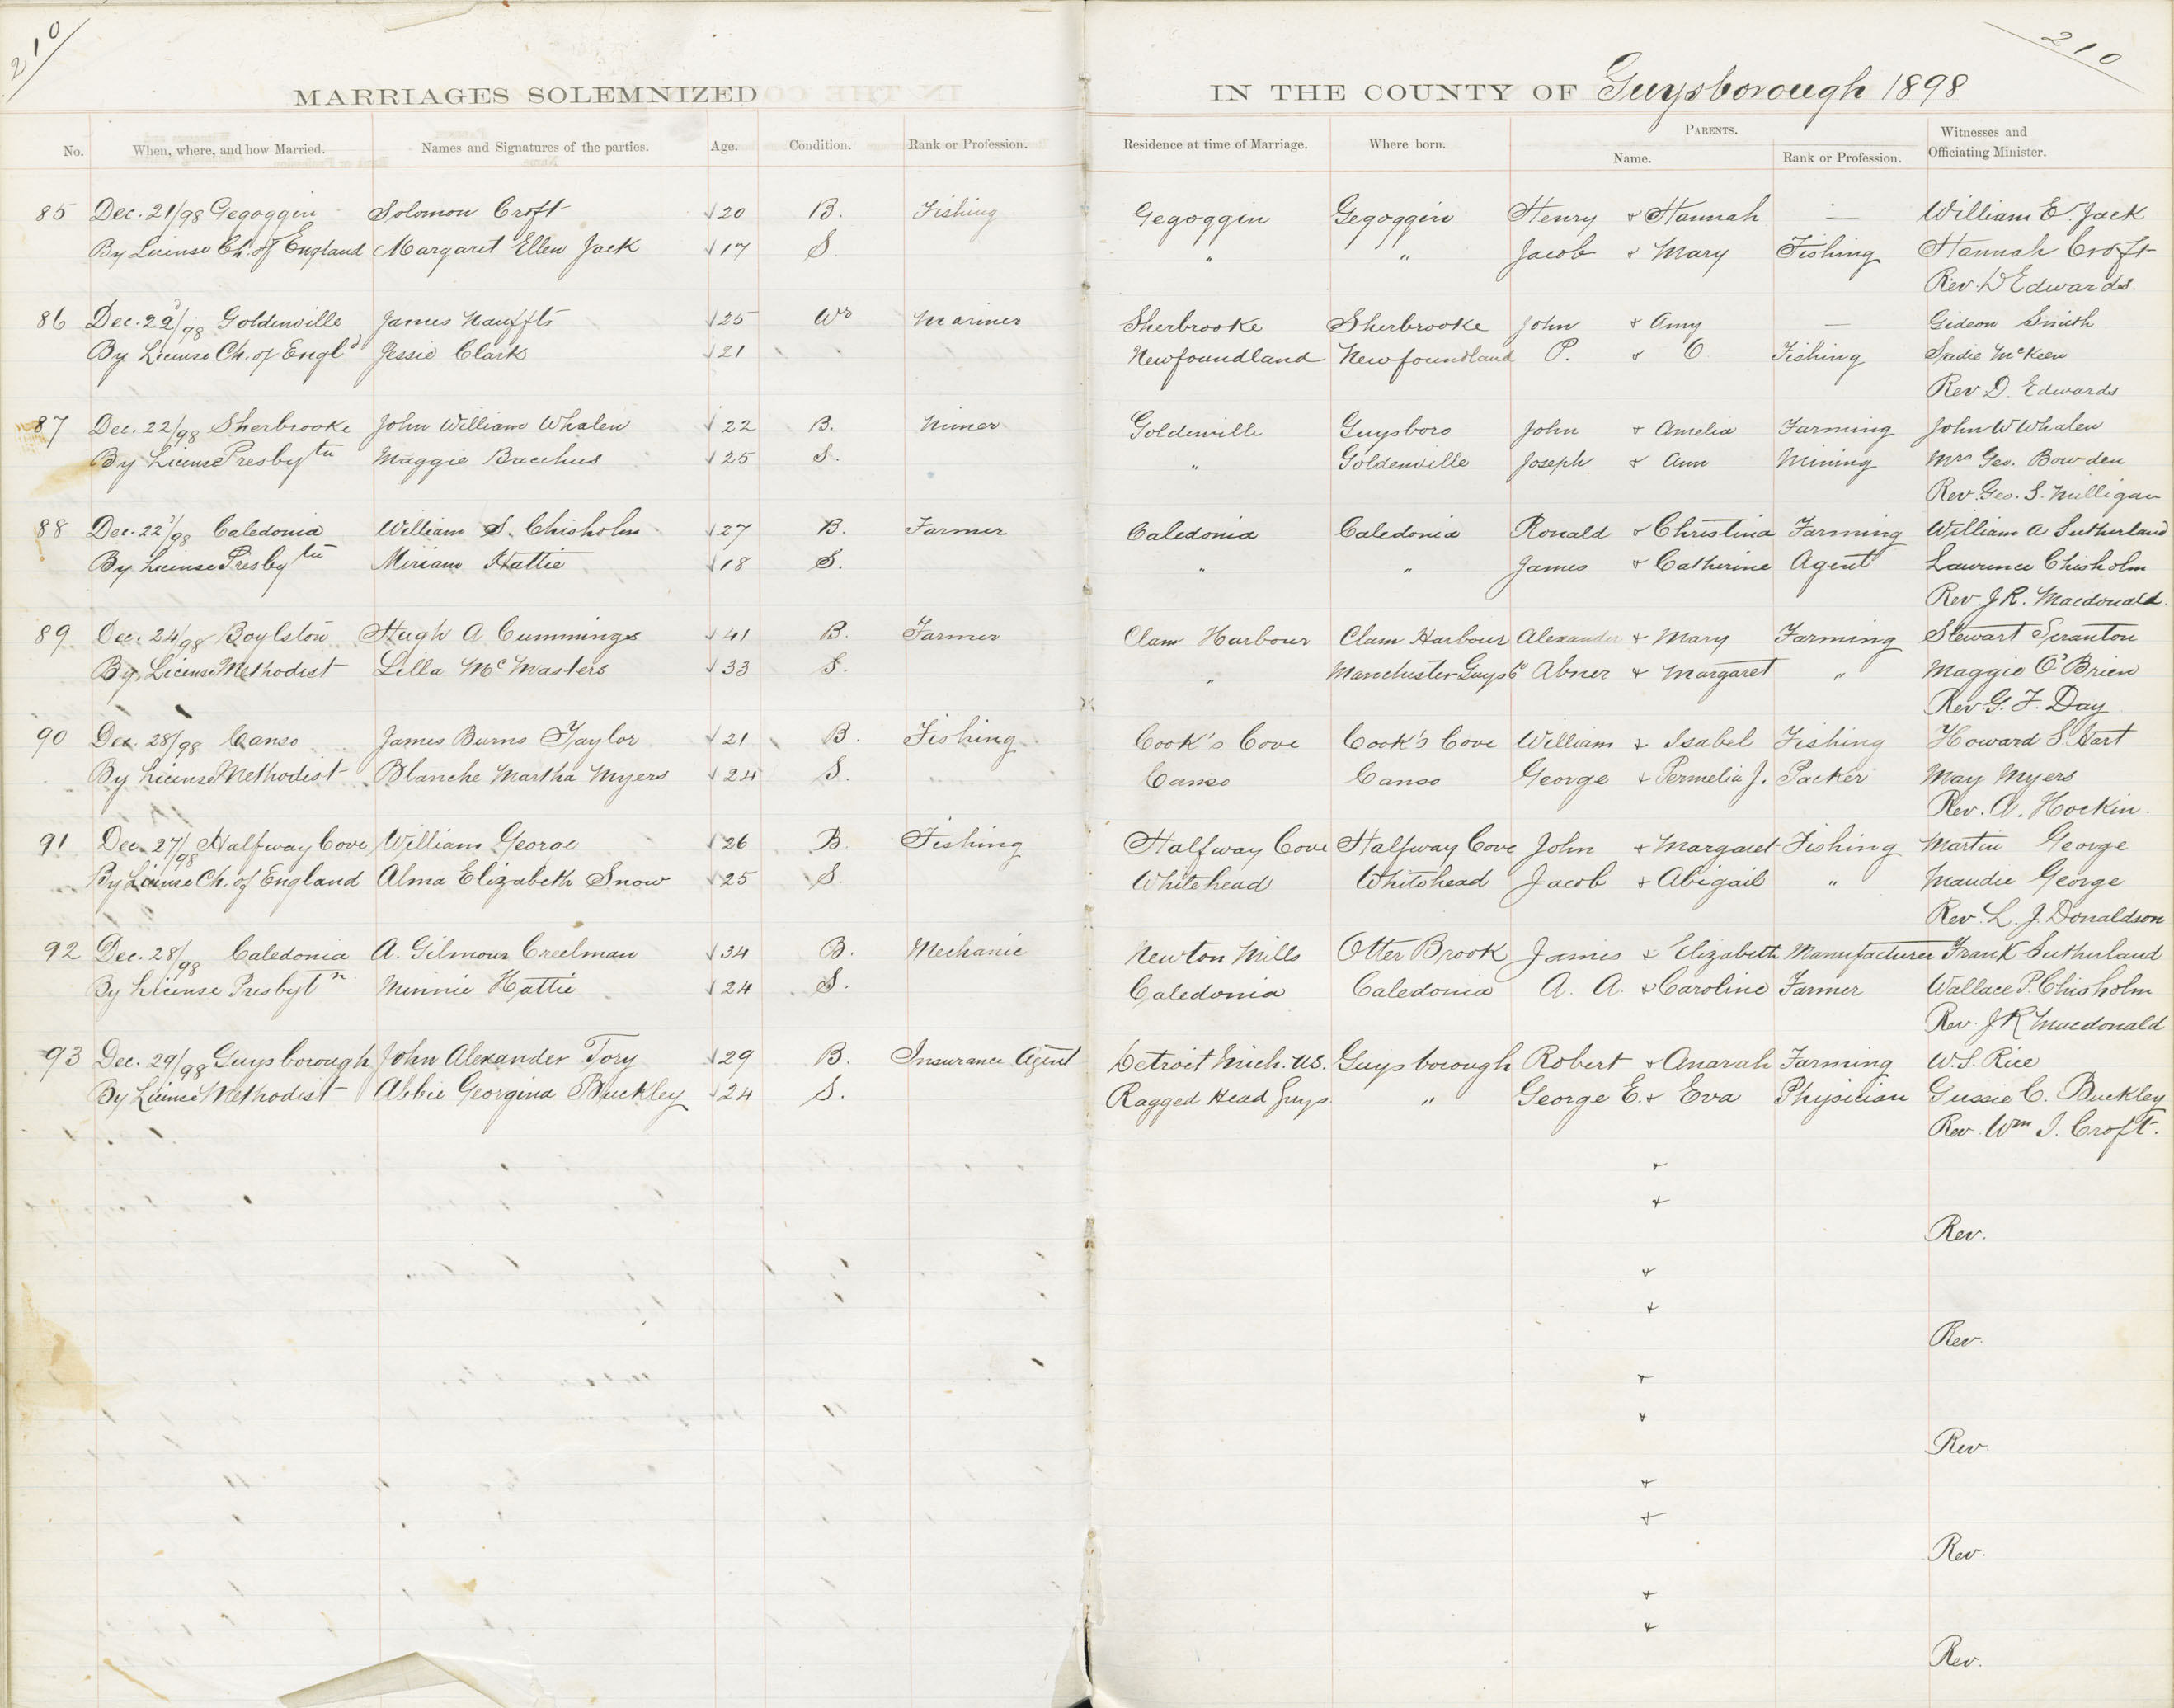 210
210
MARRIAGES SOLEMNIZED IN THE COUNTY OF Guysborough 1898
No. When, where, and how Married. Names and Signatures of the parties. Age. Condition. Rank or Profession. Residence at time of Marriage. Where born. PARENTS. Name. Rank or Profession. Witnesses and Officiating Minister.
85 Dec. 21/98 Gegoggin Solomon Croft √20 B. Fishing Gegoggin Gegoggin Henry & Hannah — William E. Jack
By License Ch. of England Margaret Ellen Jack √17 S. " " Jacob & Mary Fishing Hannah Croft
Rev. D Edwards.
86 Dec. 22/98 Goldenville James Nauffts √25 Wr Mariner Sherbrooke Sherbrooke John & Amy — Gideon Smith
By License Ch. of Engld Jessie Clark √21 Newfoundland Newfoundland P. & O. Fishing Sadie McKeen
Rev D. Edwards
87 Dec. 22/98 Sherbrooke John William Whalen √22 B. Miner Goldenville Guysboro John & Amelia Farming John W Whalen
By License Presbytn Maggie Bacchus √25 S. " Goldenville Joseph & Ann Mining Mrs Geo. Bowden
Rev. Geo. S. Milligan
88 Dec. 22/98 Caledonia William S. Chisholm √27 B. Farmer Caledonia Caledonia Ronald & Christina Farming William A Sutherland
By License Presbytn Miriam Hattie √18 S. " " James & Catherine Agent Lawrence Chisholm
Rev J R. Macdonald.
89 Dec. 24/98 Boylston Hugh A Cummings √41 B. Farmer Clam Harbour Clam Harbour Alexander & Mary Farming Stewart Scranton
By License Methodist Lilla McMasters √33 S. " Manchester Guysbo Abner & Margaret " Maggie O'Brien
Rev. G. F. Day
90 Dec. 28/98 Canso James Burns Taylor √21 B. Fishing Cook's Cove Cook's Cove William & Isabel Fishing Howard S. Hart
By License Methodist Blanche Martha Myers √24 S. Canso Canso George & Permelia J. Packer May Myers
Rev. A. Hockin.
91 Dec. 27/98 Halfway Cove William George √26 B. Fishing Halfway Cove Halfway Cove John & Margaret Fishing Martin George
By License Ch. of England Alma Elizabeth Snow √25 S. Whitehead Whitehead Jacob & Abigail " Maudie George
Rev. L. J. Donaldson
92 Dec. 28/98 Caledonia A. Gilmour Creelman √34 B. Mechanic Newton Mills Otter Brook James & Elizabeth Manufacturer Frank Sutherland
By License Presbytn Minnie Hattie √24 S. Caledonia Caledonia A. A. & Caroline Farmer Wallace P. Chisholm
Rev. J R Macdonald
93 Dec. 29/98 Guysborough John Alexander Tory √29 B. Insurance Agent Detroit Mich. U.S. Guysborough Robert & Anarah Farming W. S. Rice
By License Methodist Abbie Georgina Buckley √24 S. Ragged Head Guys. " George E. & Eva Physician Gussie C. Buckley
Rev. Wm I. Croft.
&
&
Rev.
&
&
Rev.
&
&
Rev.
&
&
Rev.
&
&
Rev.